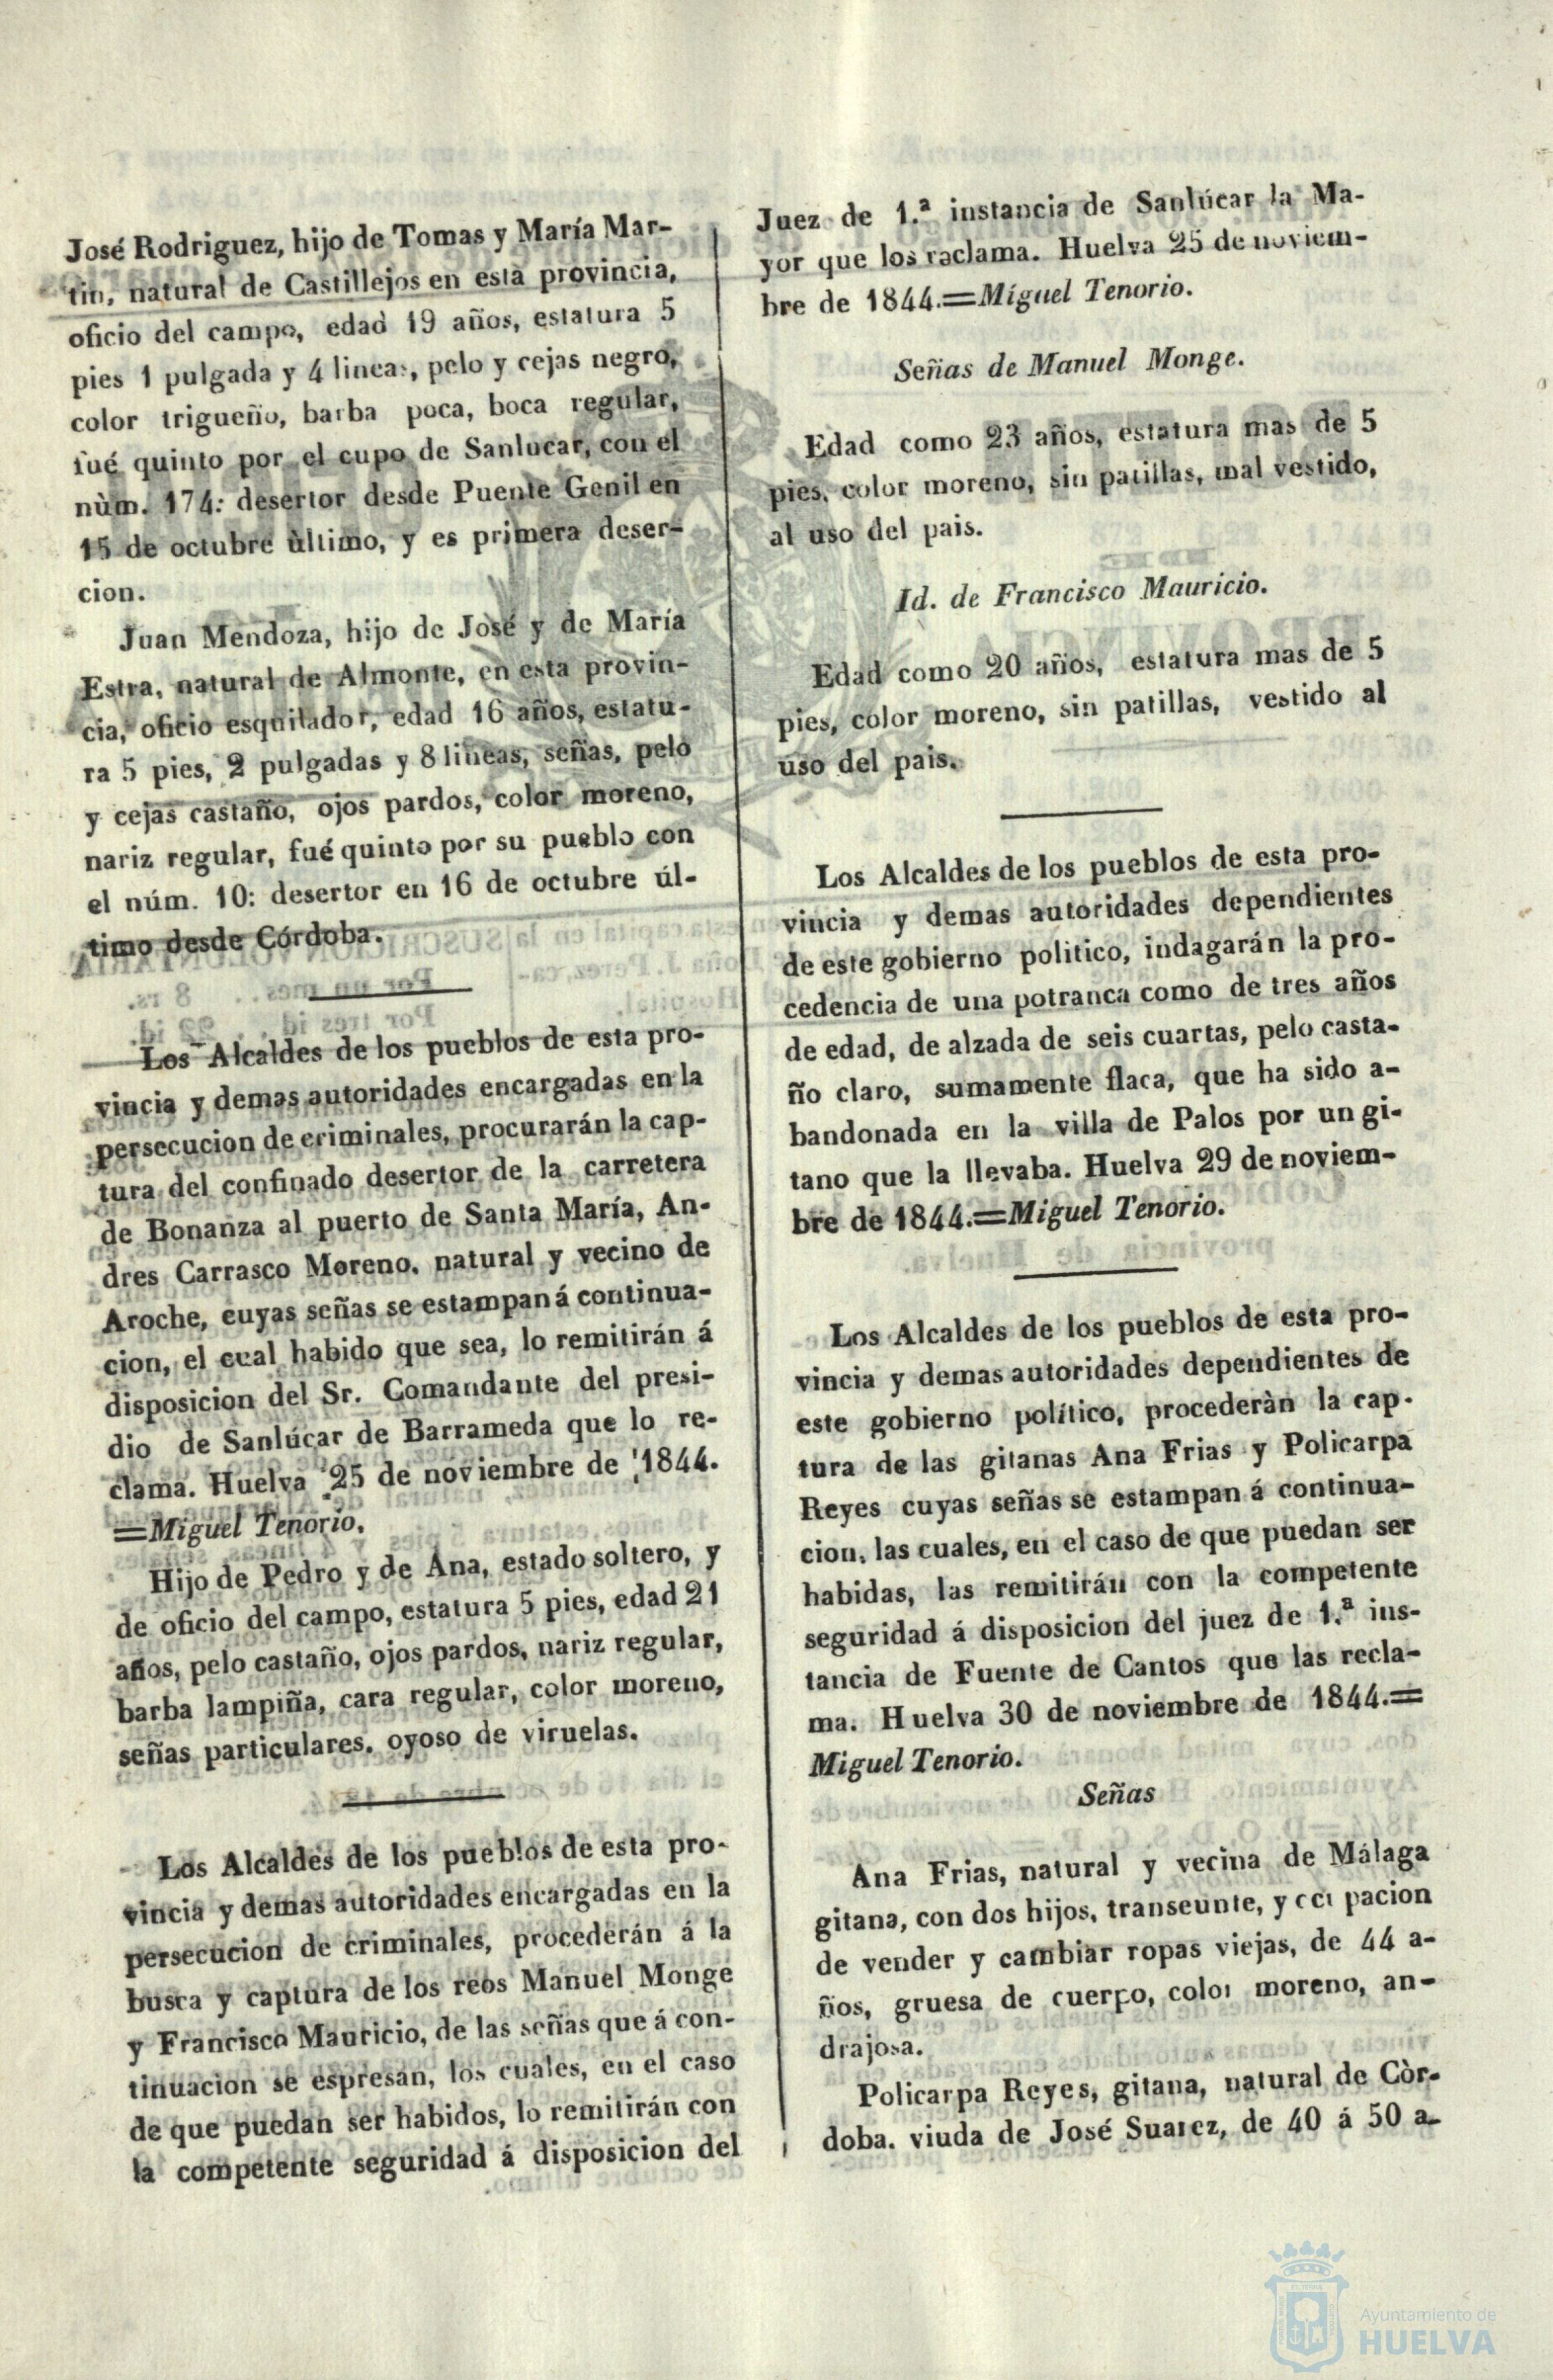 José Rodriguez, hijo de Tomas y María Mar-
tin, natural de Castillejos en esta provincia,
oficio del campo, edad 19 años, estatura 5
pies 1 pulgada y 4 lineas, pelo y cejas negro,
color trigueño, barba poca, boca regular,
fué quinto por el cupo de Sanlucar, con el
nùm. 174: desertor desde Puente Genil en
15 de octubre ùltimo, y es primera deser-
cion.
Juan Mendoza, hijo de José y de María
Estra, natural de Almonte, en esta provin-
cia, oficio esquilador, edad 16 años, estatu-
ra 5 pies, 2 pulgadas y 8 lineas, señas, pelo
y cejas castaño, ojos pardos, color moreno,
nariz regular, fué quinto por su pueblo con
el núm. 10: desertor en 16 de octubre úl-
timo desde Córdoba.
Los Alcaldes de los pueblos de esta pro-
vincia y demas autoridades encargadas en la
persecucion de criminales, procurarán la cap-
tura del confinado desertor de la carretera
de Bonanza al puerto de Santa María, An-
dres Carrasco Moreno, natural y vecino de
Aroche, cuyas señas se estampan á continua-
cion, el cual habido que sea, lo remitirán á
disposicion del Sr. Comandante del presi-
dio de Sanlúcar de Barrameda que lo re-
clama. Huelva 25 de noviembre de 1844.
=Miguel Tenorio.
Hijo de Pedro y de Ana, estado soltero, y
de oficio del campo, estatura 5 pies, edad 21
años, pelo castaño, ojos pardos, nariz regular,
barba lampiña, cara regular, color moreno,
señas particulares. oyoso de viruelas.
Los Alcaldes de los pueblos de esta pro-
vincia y demas autoridades encargadas en la
persecucion de criminales, procederán á la
busca y captura de los reos Manuel Monge
y Francisco Mauricio, de las señas que á con-
tinuacion se espresan, los cuales, en el caso
de que puedan ser habidos, lo remitirán con
la competente seguridad á disposicion del
Juez de 1.ª instancia de Sanlúcar la Ma-
yor que los reclama. Huelva 25 de noviem-
bre de 1844.=Miguel Tenorio.
Señas de Manuel Monge.
Edad como 23 años, estatura mas de 5
pies, color moreno, sin patillas, mal vestido,
al uso del pais.
Id. de Francisco Mauricio.
Edad como 20 años, estatura mas de 5
pies, color moreno, sin patillas, vestido al
uso del pais.
Los Alcaldes de los pueblos de esta pro-
vincia y demas autoridades dependientes
de este gobierno politico, indagarán la pro-
cedencia de una potranca como de tres años
de edad, de alzada de seis cuartas, pelo casta-
ño claro, sumamente flaca, que ha sido a-
bandonada en la villa de Palos por un gi-
tano que la llevaba. Huelva 29 de noviem-
bre de 1844.=Miguel Tenorio.
Los Alcaldes de los pueblos de esta pro-
vincia y demas autoridades dependientes de
este gobierno político, procederàn la cap-
tura de las gitanas Ana Frias y Policarpa
Reyes cuyas señas se estampan á continua-
cion, las cuales, en el caso de que puedan ser
habidas, las remitirán con la competente
seguridad á disposicion del juez de 1.ª ins-
tancia de Fuente de Cantos que las recla-
ma. Huelva 30 de noviembre de 1844.=
Miguel Tenorio.
Señas
Ana Frias, natural y vecina de Málaga
gitana, con dos hijos, transeunte, y ocupacion
de vender y cambiar ropas viejas, de 44 a-
ños, gruesa de cuerpo, color moreno, an-
drajosa.
Policarpa Reyes, gitana, natural de Còr-
doba. viuda de José Suarez, de 40 á 50 a-
Ayuntamiento de
HUELVA